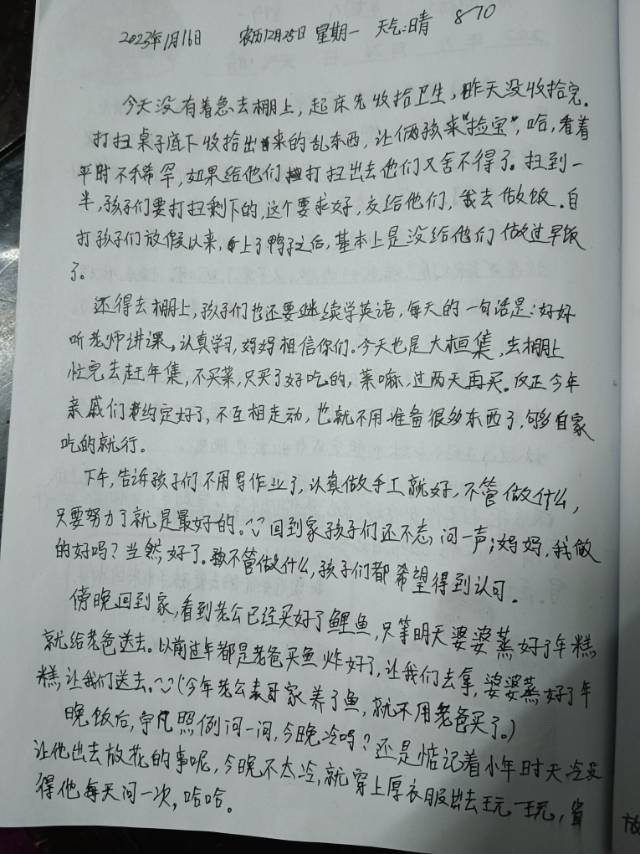 2023年1月16日 农历12月25日 星期一 天气:晴 870
今天没有着急去棚上,起床先收拾卫生,昨天没收拾完.
打扫桌子底下收拾出来的乱东西,让俩孩来"捡宝",哈,看着
平时不稀罕,如果给他们打扫出去他们又舍不得了。扫到一
半,孩子们要打扫剩下的,这个要求好,交给他们,我去做饭.自
打孩子们放假以来,上了鸭子之后,基本上是没给他们做过早饭
了。
还得去棚上,孩子们也还要继续学英语,每天的一句话是:好好
听老师讲课,认真学习,妈妈相信你们。今天也是大桓集,去棚上
忙完去赶年集,不买菜,只买了好吃的,菜嘛,过两天再买。反正今年
亲戚们都约定好了,不互相走动,也就不用准备很多东西了,够自家
吃的就行。
下午,告诉孩子们不用写作业了,认真做手工就好,不管做什么,
只要努力了就是最好的。回到家孩子们还不忘问一声;妈妈,我做
的好吗?当然好了.不管做什么,孩子们都希望得到认可.
傍晚回到家,看到老公已经买好了鲤鱼,只等明天婆婆蒸好了年糕
就给老爸送去。以前过年都是老爸买鱼炸好了,让我们去拿,婆婆蒸好了年
糕,让我们送去。(今年老公表哥家养了鱼,就不用老爸买了。)
晚饭后,宁凡照例问一问,今晚冷吗?还是惦记着小年时天冷没
让他出去放花的事呢,今晚不太冷,就穿上厚衣服出去玩一玩,省
得他每天问一次,哈哈。